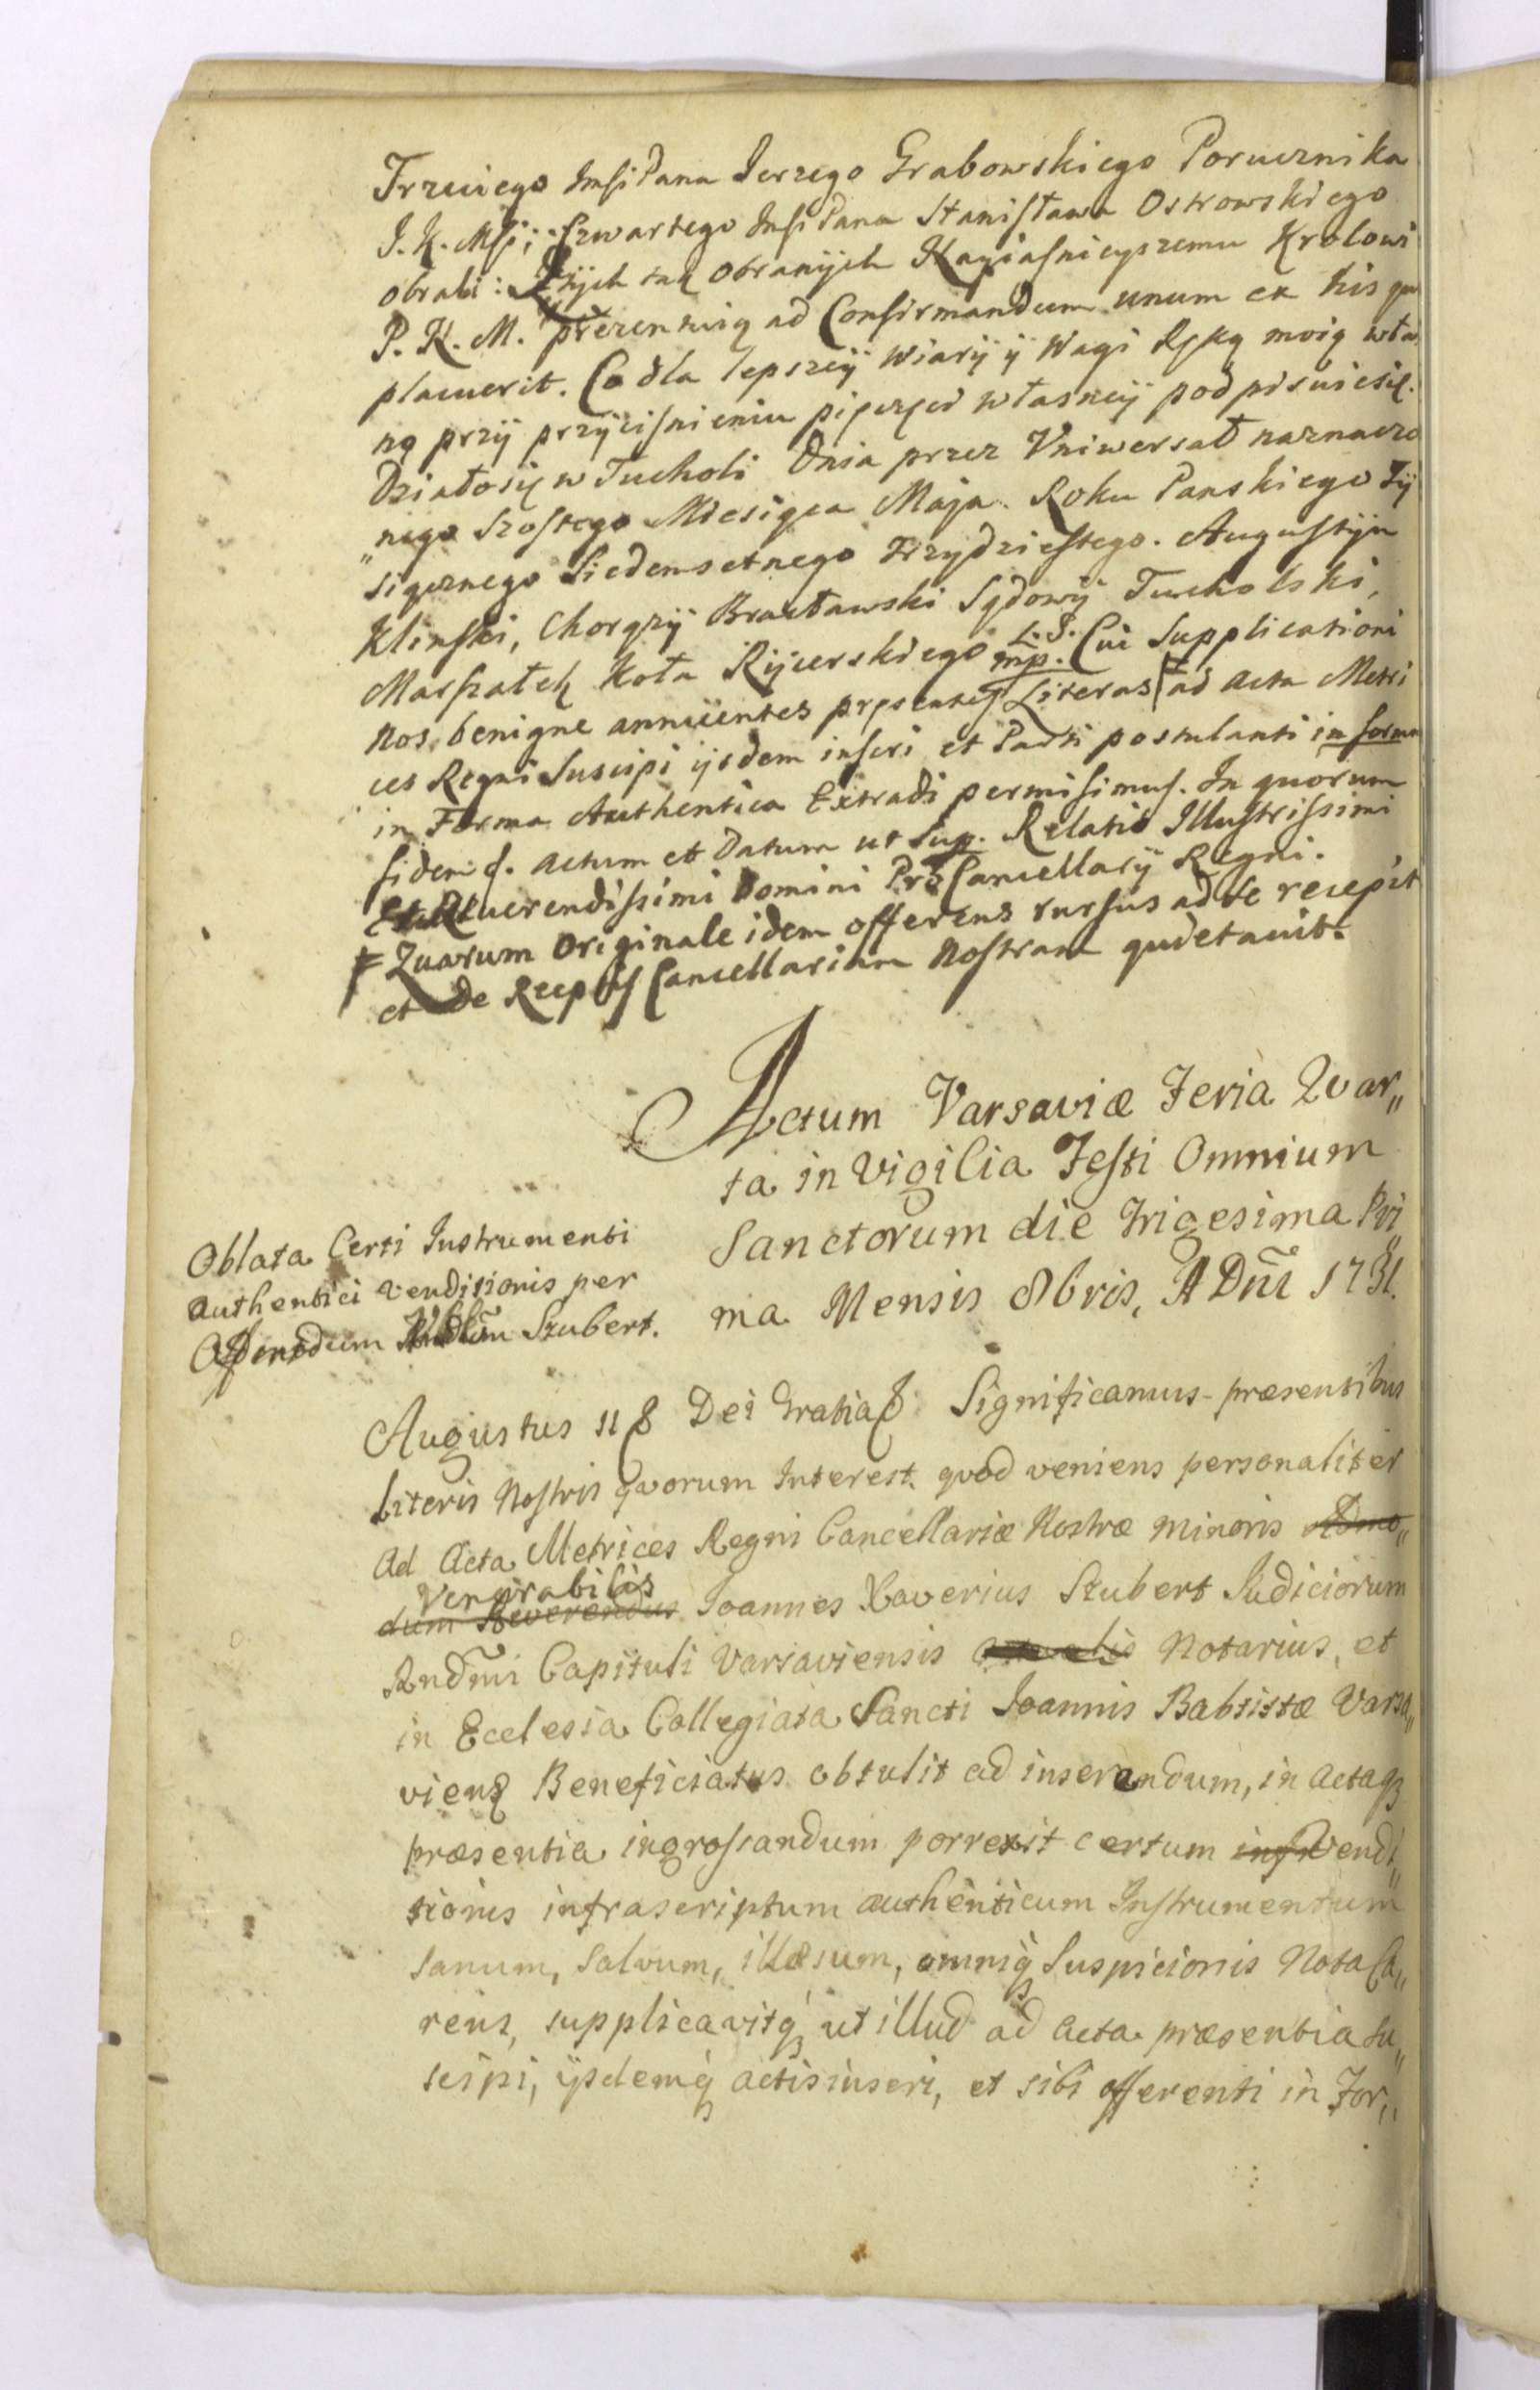 Trzeciego Imsi Pana Jerzego Grabowskiego Porucznika
J. K. Msci; Czwartego Imsi Pana Stanisława Ostrowskiego
obrali: Ktorych tak obranÿch Nayiasnieyszemu Krolowi
P. N. M. prezentuią ad Confirmandum unum ex his qui
placuerit. Co dla lepszeÿ wiarÿ ÿ wagi Ręką moią włas
ną przÿ przÿcisnieniu pięczęci własneÿ podpisuięsię.
Działosię w Tucholi Dnia przez Vniwersał naznaczo
"nego Szostego Miesiąca Maja. Roku Panskiego Tÿ
siącznego Siedemsetnego Trzydziestego. Augustÿn
Klinski, Chorązÿ Bracławski Sądowÿ Tucholski,
Marszałek Koła Rÿcerskiego L.S. mp. Cui Supplicationi
Nos benigne annuentes pręsentes Literas ≠ ad Acta Metri
ces Regni Suscipi ijsdem inseri et Parti postulanti in forma
in Forma Authentica Extradi permisimus. In quorum
fidem &. Actum et Datum ut Sup. Relatio Illustrissimi
Et Reuerendissimi Domini Pro Cancellarÿ Regni.
≠ Quarum Originale idem offerens rursus ad se recepit
et de Receptis Cancellariam Nostram quietauit.
Actum Varsaviæ Feria Qvar,,
ta in Vigilia Festi Omnium
Sanctorum die Trigesima Pri,,
ma Mensis 8bris, A Dni 1731.
Oblata Certi Instrumenti
Authentici Venditionis per
Szubert.
Augustus II & Dei Gratia &. Significamus præsentibus
Literis Nostris qvorum Interest. qvod veniens personaliter
Ad Acta Metrices Regni Cancellariæ Nostræ Minoris Admo,,
Venerabilis
dum Reverendus Joannes Xaverius Szubert Judiciorum
Rndmi Capituli Varsaviensis Notarius, et
in Ecclesia Collegiata Sancti Joannis Babtistæ Varsa,,
viens Beneficiatus obtulit ad inserendum, in Actaq3
præsentia ingrossandum porrexit certum infr Vendi,,
tionis infrascriptum authenticum Instrumentum
Sanum, Salvum, illæsum, omniq3 Suspicionis Nota Ca,,
rens, supplicavitq3 ut illud ad Acta præsentia Su,,
scipi, ijsdemq3 actis inseri, et sibi offerenti in For,,